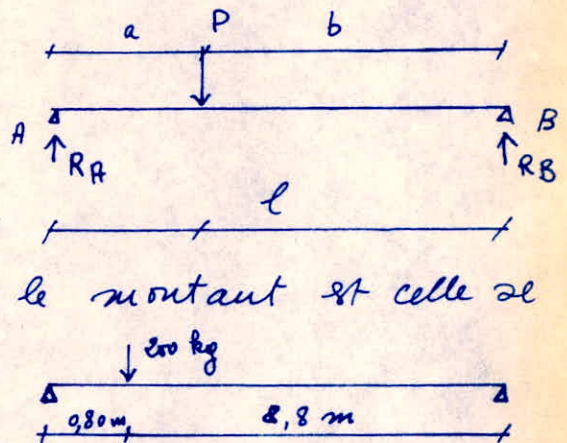 a P b
A B
RA RB
l
le montant est celle se
200 kg
0,80 m 2,8 m